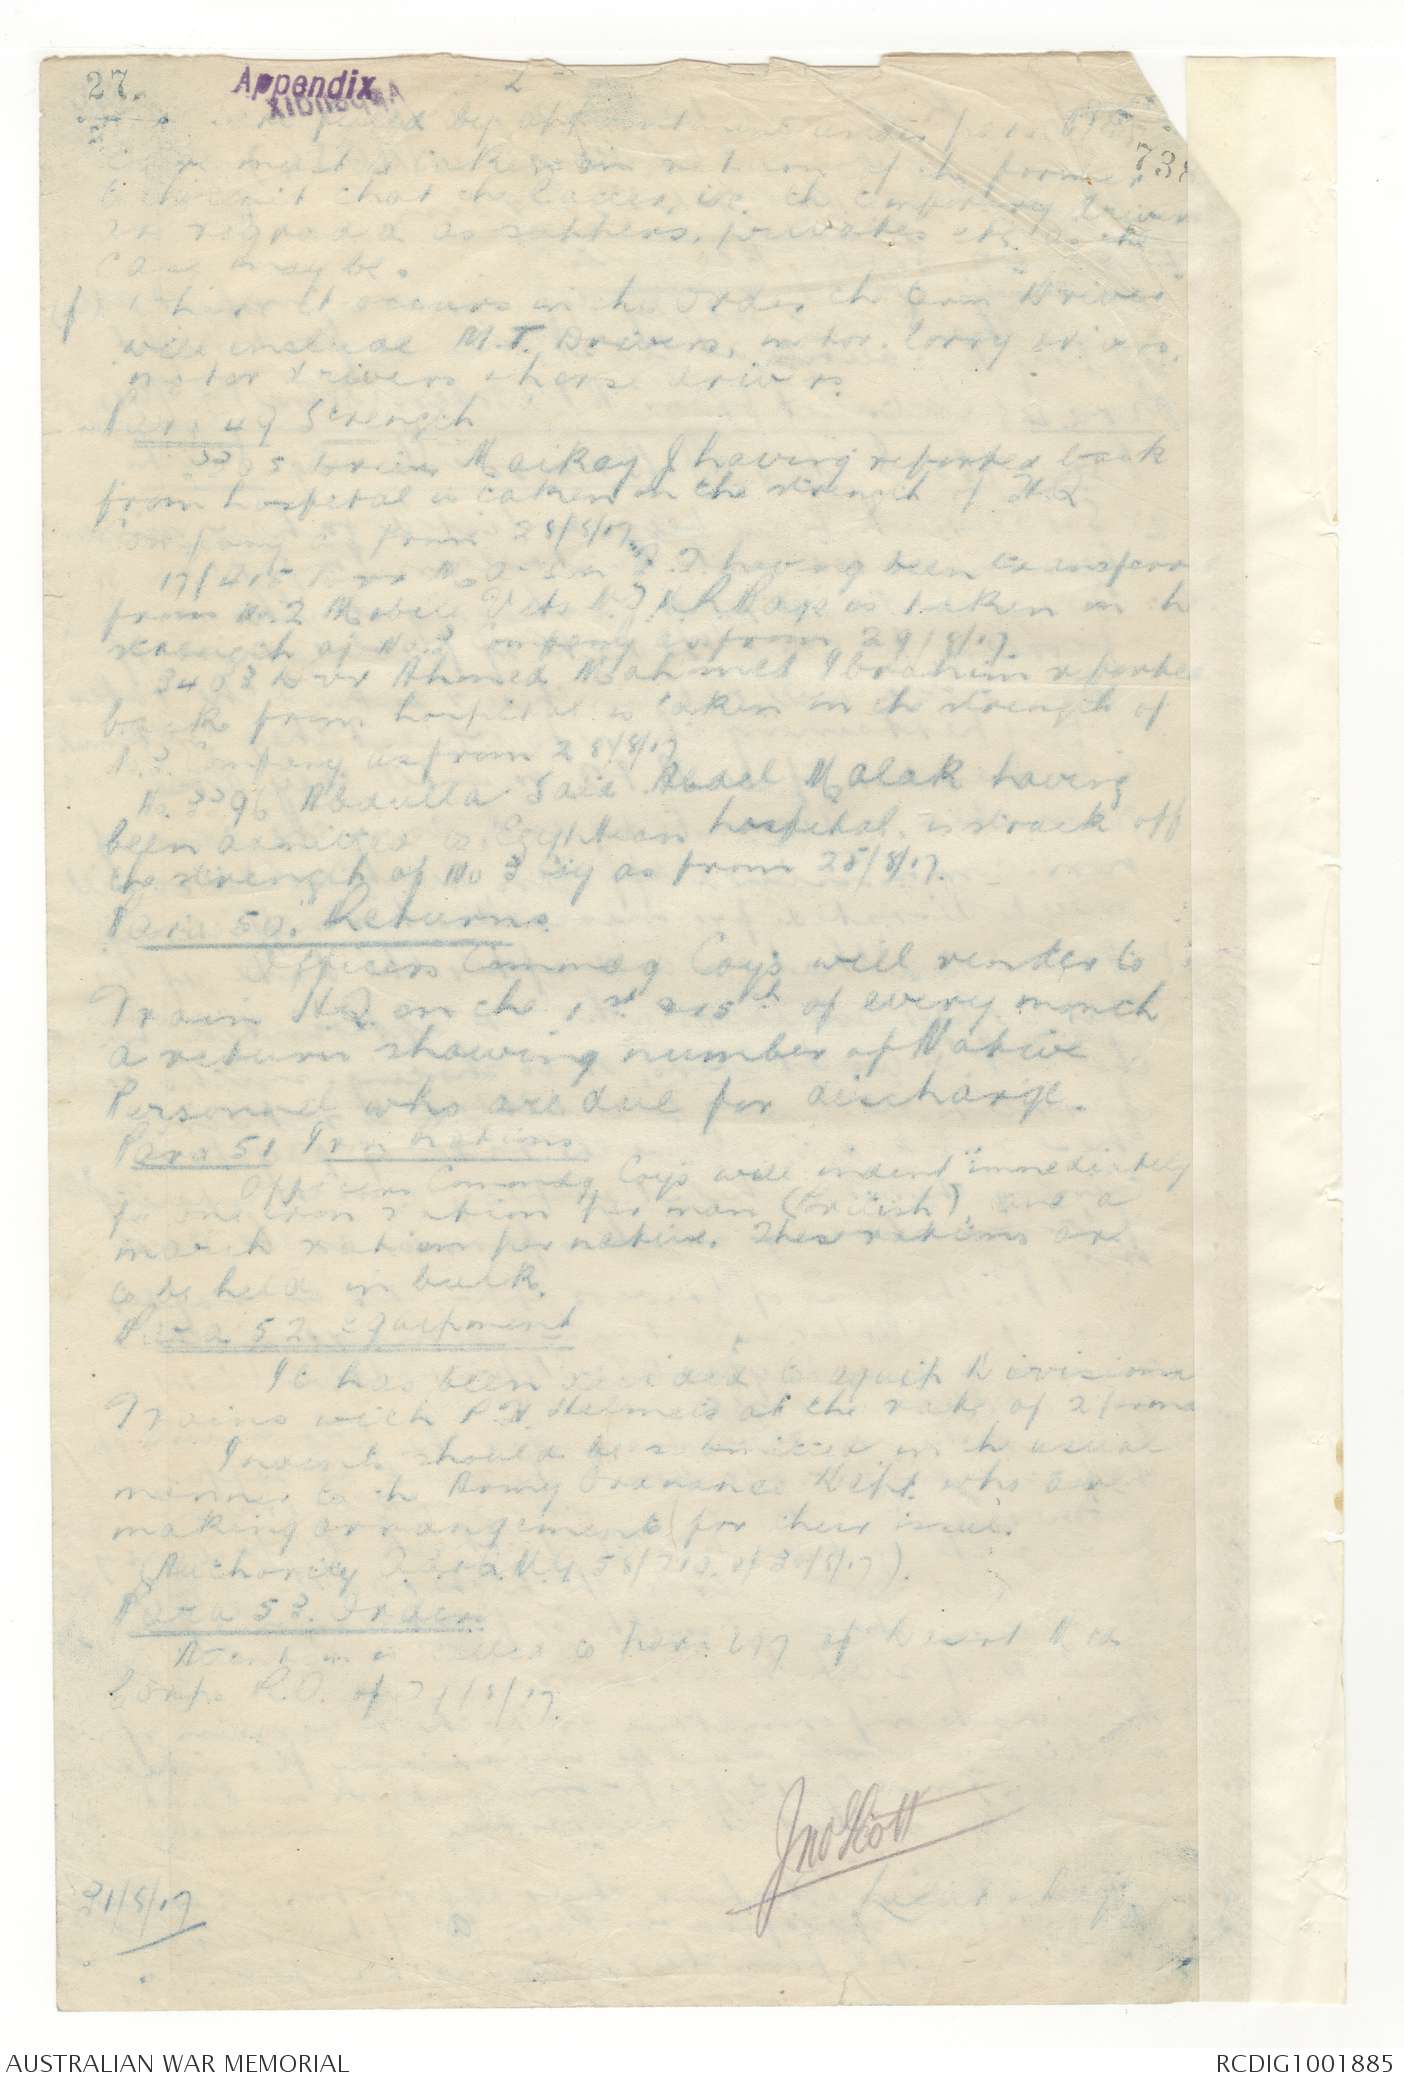 27.
Appendix
2
738
filled by appointment under para
must return of the former
that the latter, i.e. the temporary driver
are regraded as sappers, privates etc. as the
case may be.
(f) Where it occurs in the Order the term "Driver"
will include M.T. Drivers, motor lorry drivers,
motor drivers & horse drivers
Para 49 Strength
Driver Mackay J having reported back
from hospital is taken on the strength of No 2
Company as from 28/8/17.
17/415 Dvr having been transferred
from No. 2 Mobile Vets is taken on the
strength of No. 3 Company as from 29/8/17
3403 Dvr Ahmed Mahmed Ibrahim reported
back from hospital is taken on the strength of
No. 3 Company as from 28/8/17
No. 3396 Abdulla Said Abdel Malak having
been admitted to Egyptian hospital is struck off
the strength of No 3 Coy as from 28/8/17.
Para 50. Returns
Officers Commdg Coys will render to
Train H.Q. on the 1st & 15th of every month
a return showing number of Native
Personnel who are due for discharge.
Para 51 Iron Rations
Officers Commdg Coys will indent immediately
for one iron ration per man (British), and a
march ration per native. These rations are
to be held in bulk.
Para 52. Equipment
It has been decided to equip Divisional
Trains with P.H. Helmets at the rate of 2 per man
Indents should be submitted in the usual
manner to the Army Ordnance Dept. who are
making arrangements for their issue.
(Authority of 30/8/17).
Para 53. Orders
Attention is called to Para 697 of Desert Mtd
Corps R.O. of 31/8/17.
Jno Stott
31/8/17
AUSTRALIAN WAR MEMORIAL
RCDIG1001885